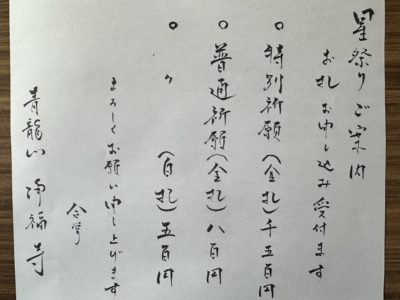 星祭りご案内
お札お申し込み受付ます
○ 特別祈願(金札)千五百円
○ 普通祈願(金札)八百円
○ 〃 (白札)五百円
よろしくお願い申し上げます
合掌
青龍山 浄福寺